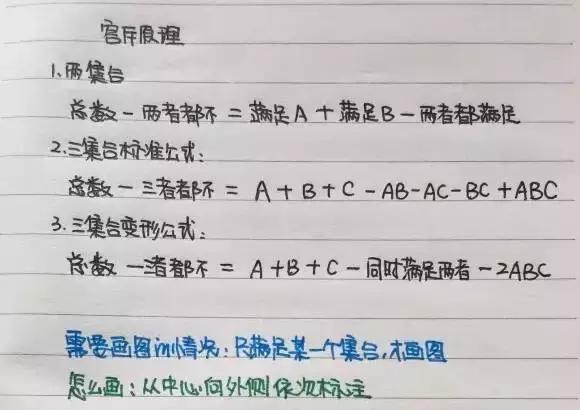 容斥原理
1.两集合
总数-两者都不=满足A+满足B-两者都满足
2.三集合标准公式:
总数-三者都不=A+B+C-AB-AC-BC+ABC
3.三集合变形公式:
总数-三者都不=A+B+C-同时满足两者-2ABC
需要画图的情况:只满足某一个集合,才画图
怎么画:从中心向外侧依次标注